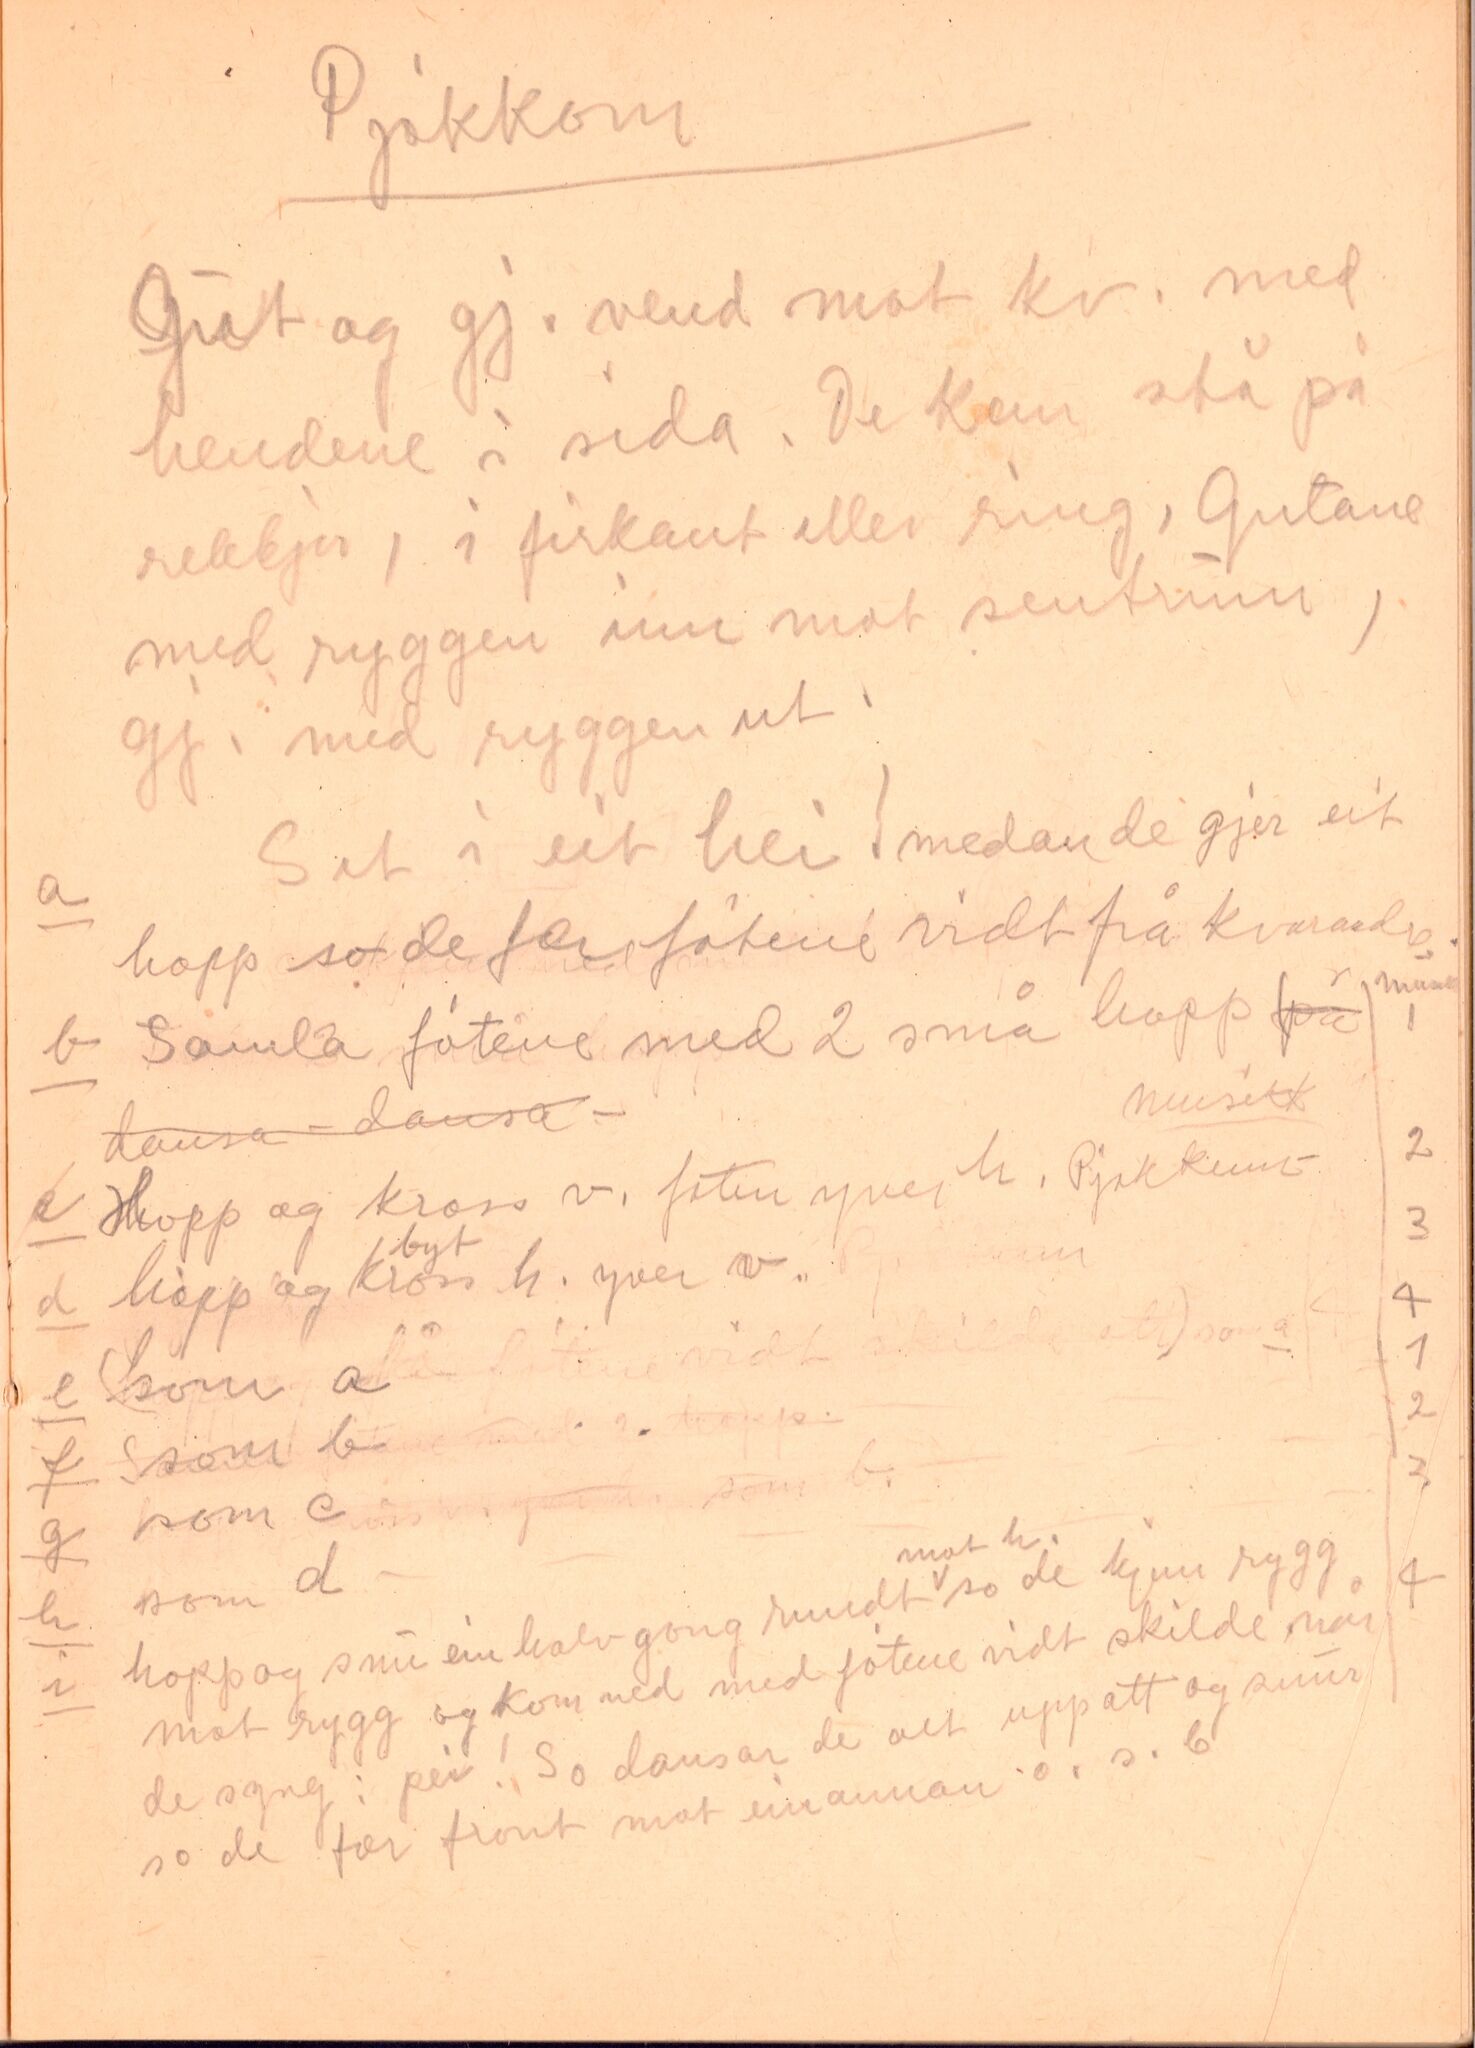 Pjåkkom
Gut og gj. vend mot kv. med
hendene i sida. De kan stå på
rekkjer, i firkant eller ring, Gutane
med ryggen inn mot sentrum,
gj. med ryggen ut.
a Set i eit hei! medan de gjer eit
hopp so de fær føtene vidt frå kvarandre.
musikk
b Samla føtene med 2 små hopp (på 1
dansa - dansa - musikk
c Hopp og kross v. foten yver h. Pjåkkum 2
3
byt
d hopp og kross h. yver v. 4
e som a 1
f som b 2
g som c 3
h som d - 4
mot h.
i hopp og snu ein halv gong rundt so de kjem rygg
mot rygg og kom ned med føtene vidt skilde når
de syng: pei! So dansar de alt uppatt og snur
so de fær front mot einannan o. s. b